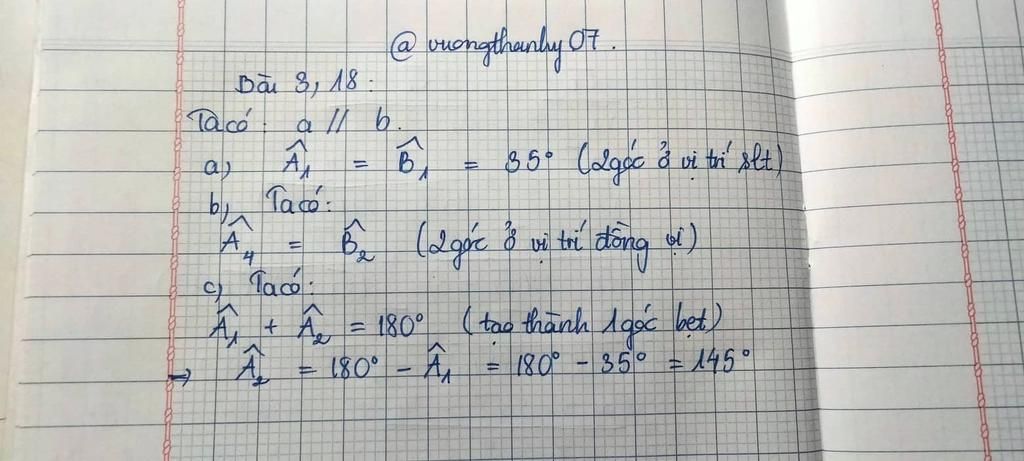 @ vuongthanhy 07.
Bài 3, 18:
Ta có: a // b.
a) Â₁ = B̂₁ = 35° (2 góc ở vị trí slt)
b) Ta có:
Â₄ = B̂₂ (2 góc ở vị trí đồng vị)
c) Ta có:
Â₁ + Â₂ = 180° (tạo thành 1 góc bẹt)
→ Â₂ = 180° - Â₁ = 180° - 35° = 145°